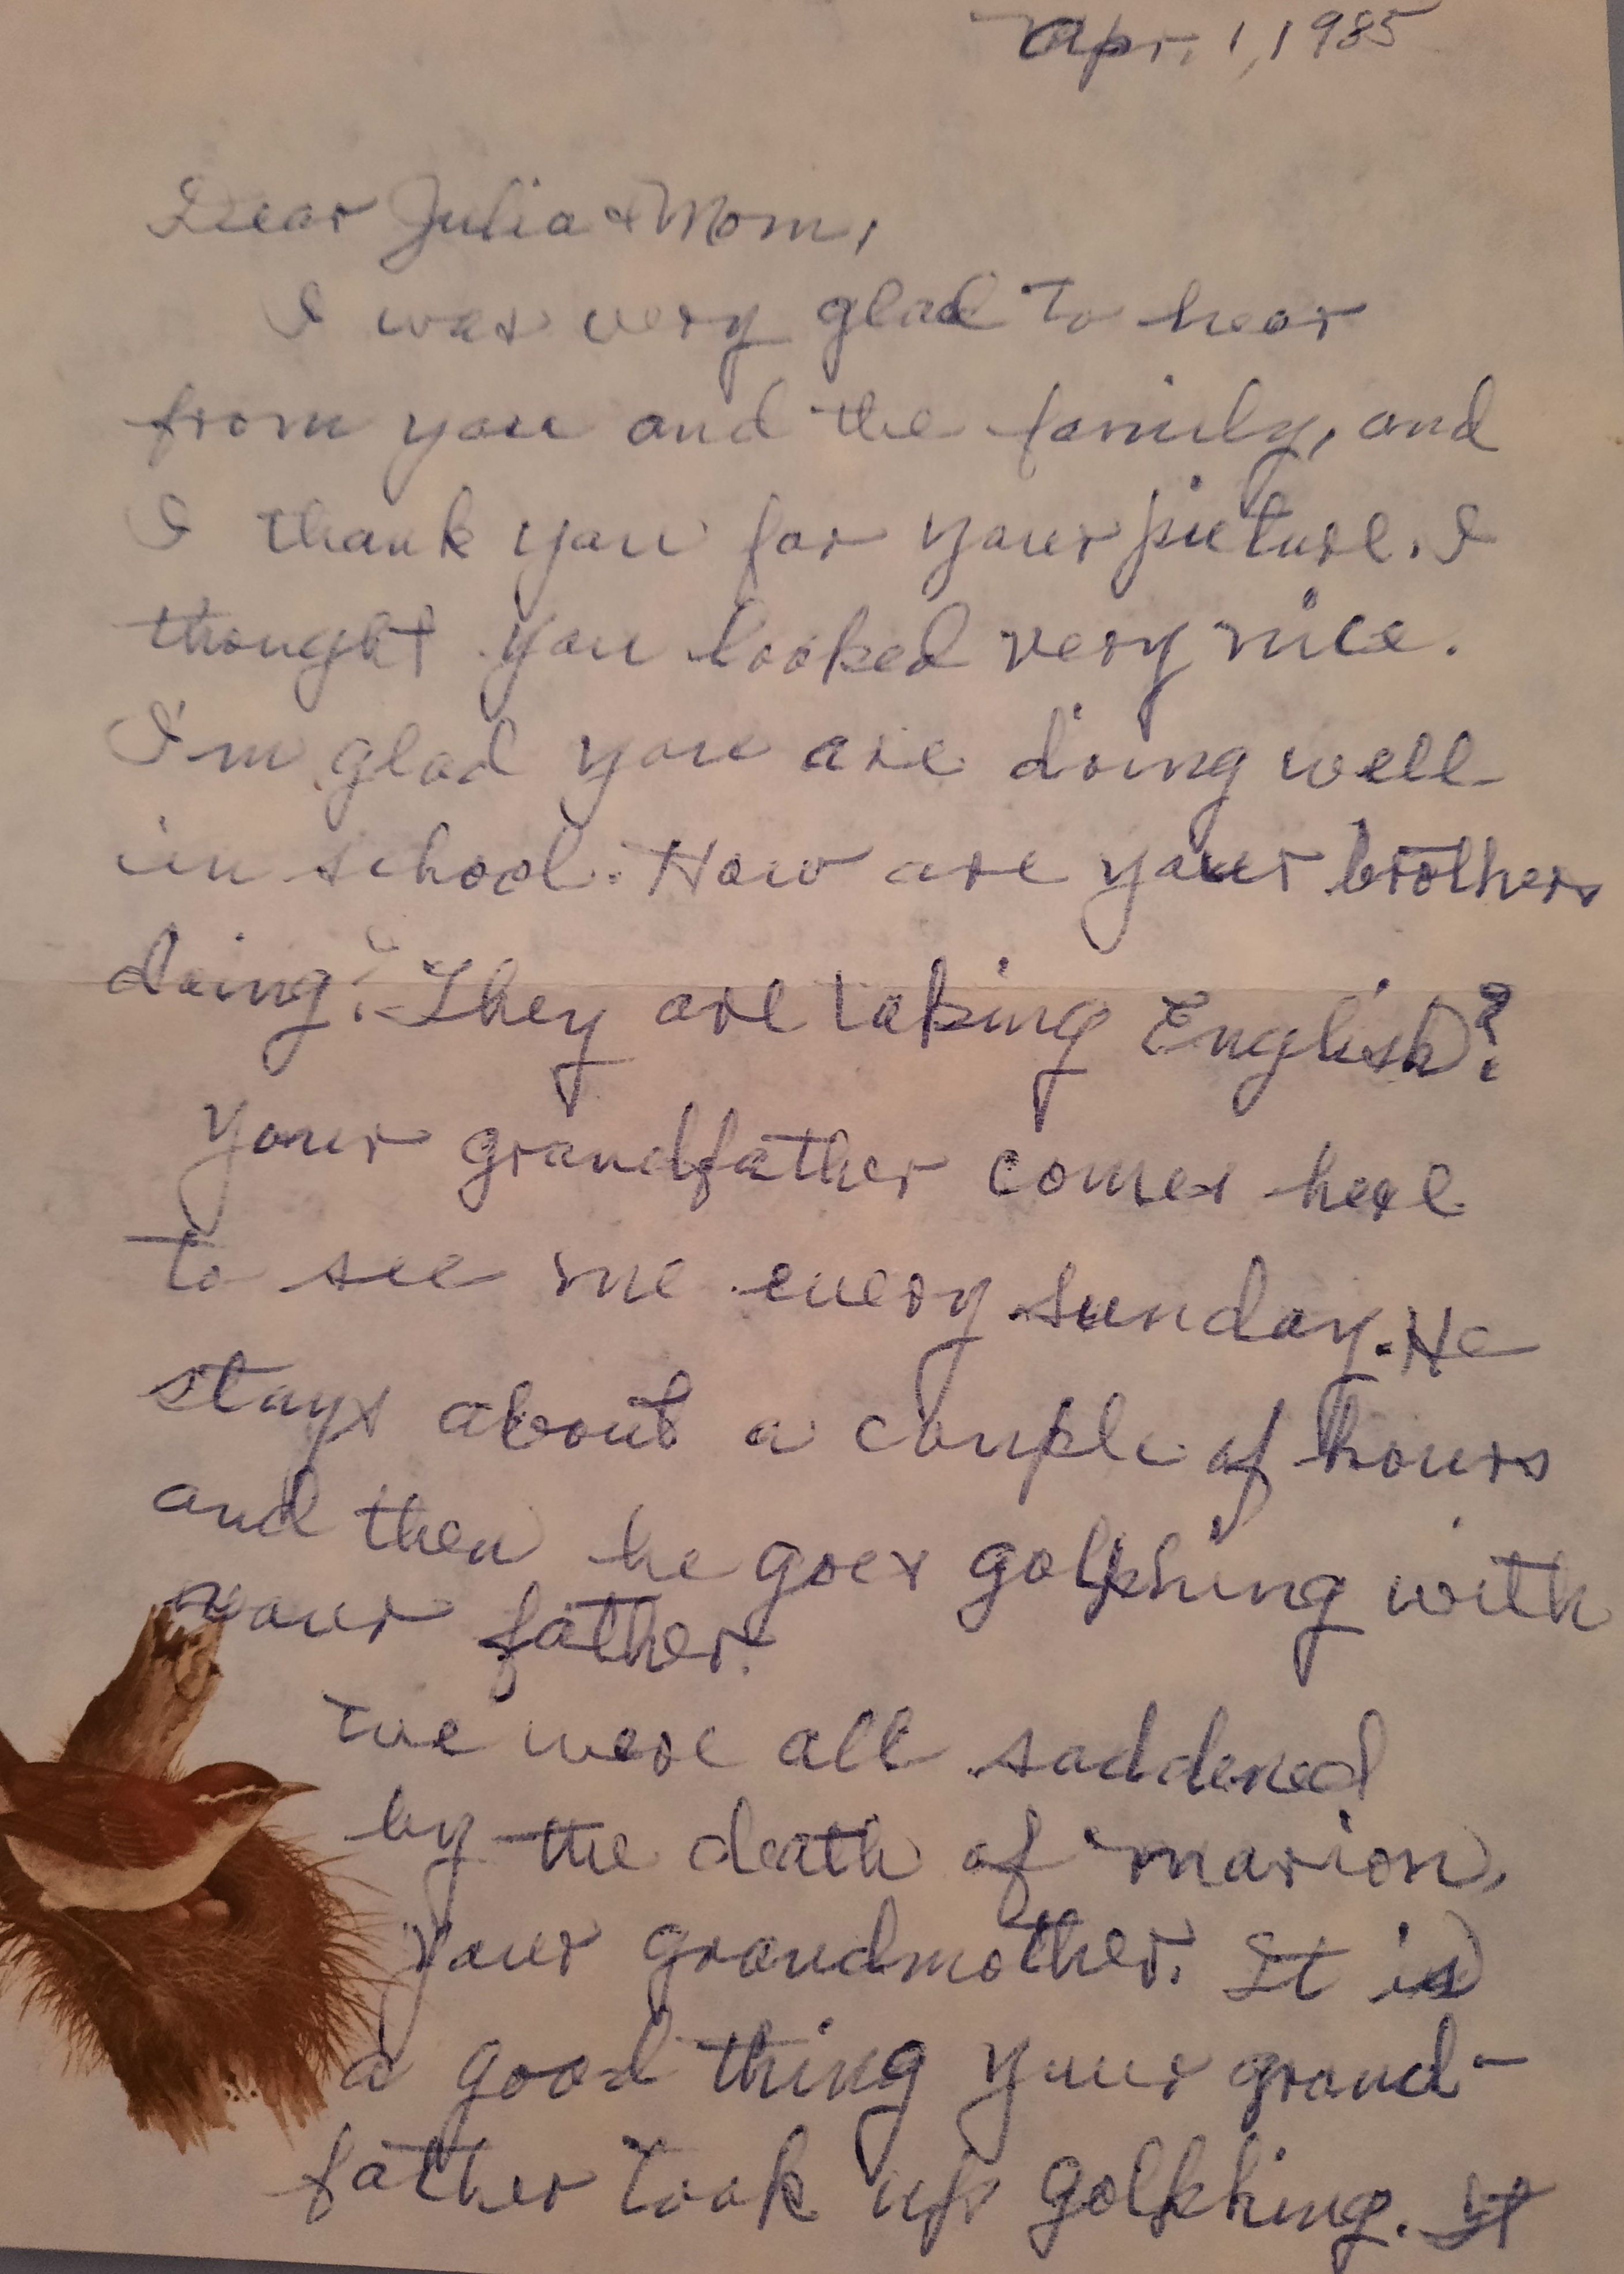 Apr. 1, 1985
Dear Julia & Mom,
I was very glad to hear
from you and the family, and
I thank you for your picture. I
thought you looked very nice.
I'm glad you are doing well
in school. How are your brothers
doing? They are taking English?
Your grandfather comes here
to see me every Sunday. He
stays about a couple of hours
and then he goes golfhing with
your father.
We were all saddened
by the death of Marion,
your grandmother. It is
a good thing your grand-
father took up golfhing. It